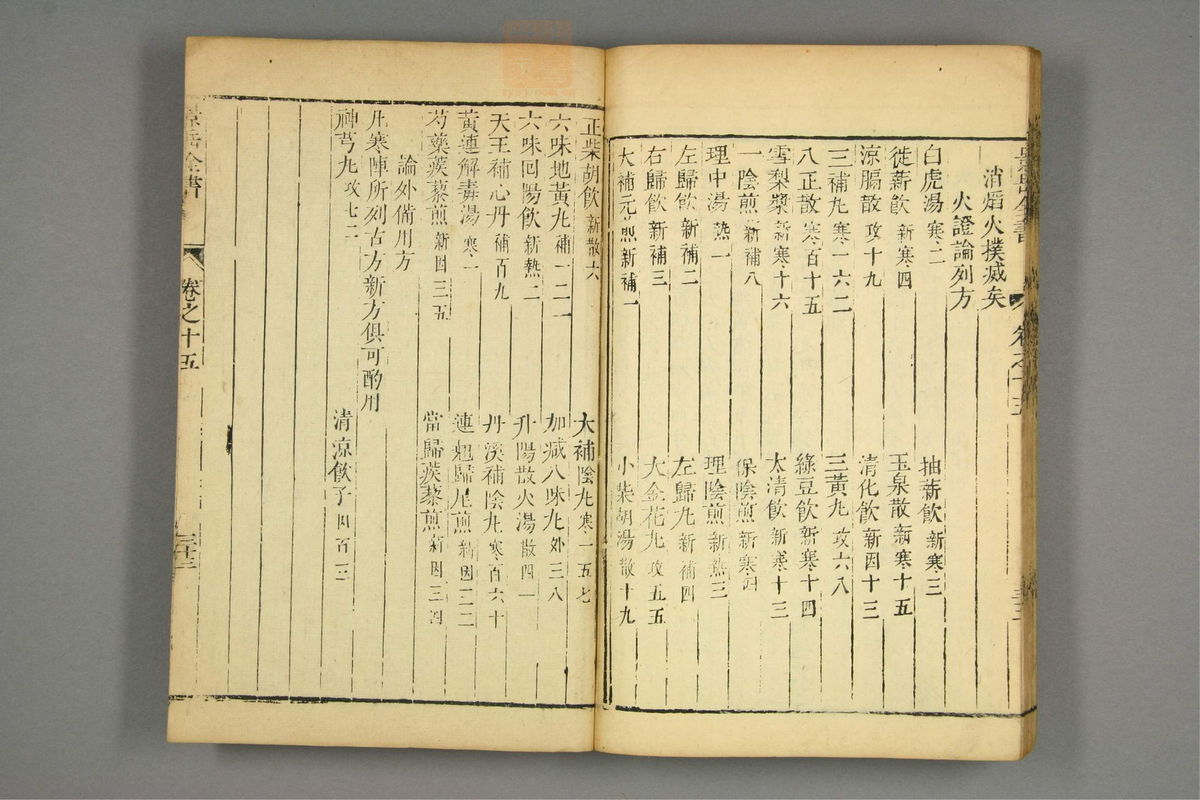 消熖火撲滅矣
火證論列方
白虎湯 寒二
抽薪飲 新寒三
徙薪飲 新寒四
玉泉散 新寒十五
涼膈散 攻十九
清化飲 新因十三
三補丸 寒一六二
三黃丸 攻六八
八正散 寒百十五
綠豆飲 新寒十四
雪梨漿 新寒十六
太清飲 新寒十三
一陰煎 新補八
保陰煎 新寒四
理中湯 熱一
理陰煎 新熱三
左歸飲 新補二
左歸丸 新補四
右歸飲 新補三
大金花丸 攻五五
大補元煎 新補一
小柴胡湯 散十九
正柴胡飲 新散六
大補陰丸 寒一五七
六味地黃丸 補一二一
加減八味丸 外三八
六味回陽飲 新熱二
升陽散火湯 散四一
天王補心丹 補百九
丹溪補陰丸 寒百六十
黃連解毒湯 寒一
連翹歸尾煎 新因二二
芍藥蒺藜煎 新因三五
當歸蒺藜煎 新因三四
論外備用方
凡寒陣所列古方新方俱可酌用
神芎丸 攻七二
清涼飲子
景岳全書
卷之十五